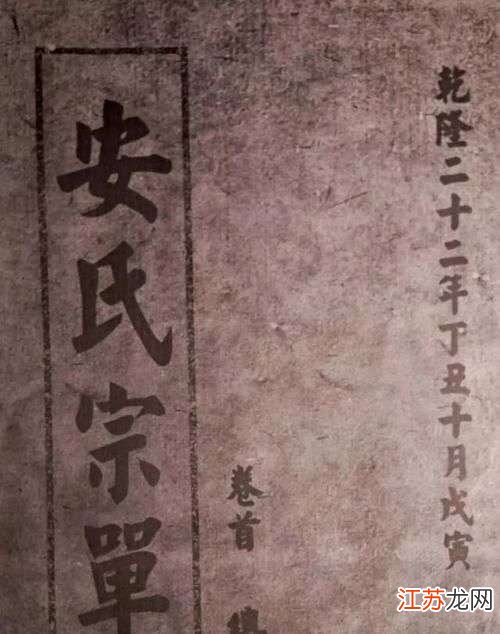 乾隆二十二年丁丑十月戊寅
卷首
安氏宗單
江苏龙网